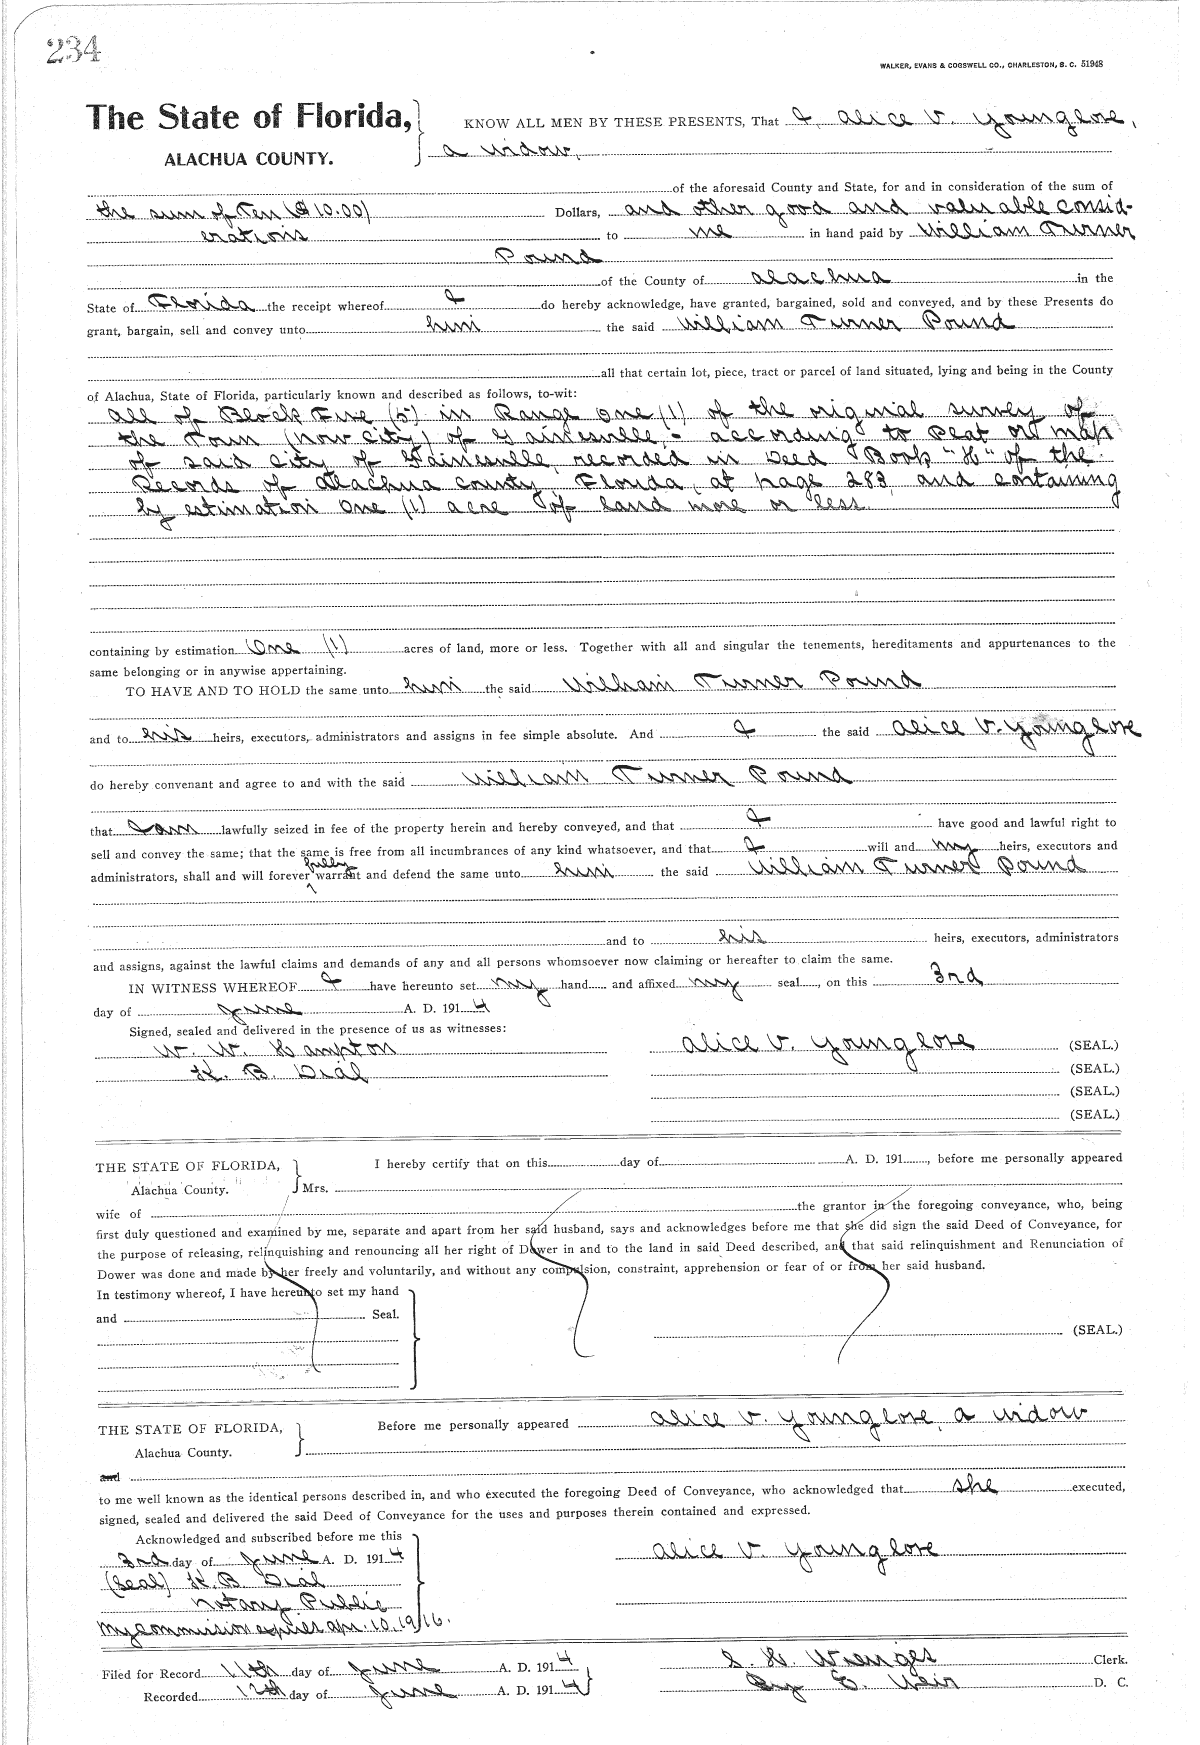 234
WALKER, EVANS & COGSWELL CO., CHARLESTON, S. C. 51948
The State of Florida, KNOW ALL MEN BY THESE PRESENTS, That I, Alice V. Younglove,
ALACHUA COUNTY. a widow,
of the aforesaid County and State, for and in consideration of the sum of
the sum of Ten ($10.00) Dollars, and other good and valuable consid-
erations to me in hand paid by William Turner
Pound
of the County of Alachua in the
State of Florida the receipt whereof I do hereby acknowledge, have granted, bargained, sold and conveyed, and by these Presents do
grant, bargain, sell and convey unto him the said William Turner Pound
all that certain lot, piece, tract or parcel of land situated, lying and being in the County
of Alachua, State of Florida, particularly known and described as follows, to-wit:
All of Block Five (5) in Range One (1) of the original survey of
the Town (now city) of Gainesville, - according to plat or map
of said city of Gainesville, recorded in Deed Book "H" of the
Records of Alachua County, Florida, at page 283, and containing
by estimation One (1) acre of land more or less.
containing by estimation One (1) acres of land, more or less. Together with all and singular the tenements, hereditaments and appurtenances to the
same belonging or in anywise appertaining.
TO HAVE AND TO HOLD the same unto him the said William Turner Pound
and to his heirs, executors, administrators and assigns in fee simple absolute. And I the said Alice V. Younglove
do hereby convenant and agree to and with the said William Turner Pound
that I am lawfully seized in fee of the property herein and hereby conveyed, and that I have good and lawful right to
sell and convey the same; that the same is free from all incumbrances of any kind whatsoever, and that I will and my heirs, executors and
administrators, shall and will forever fully warrant and defend the same unto him the said William Turner Pound
and to his heirs, executors, administrators
and assigns, against the lawful claims and demands of any and all persons whomsoever now claiming or hereafter to claim the same.
IN WITNESS WHEREOF I have hereunto set my hand and affixed my seal, on this 3rd
day of June A. D. 1914
Signed, sealed and delivered in the presence of us as witnesses:
W. W. Hampton Alice V. Younglove (SEAL.)
K. B. Dial (SEAL.)
(SEAL.)
(SEAL.)
THE STATE OF FLORIDA, I hereby certify that on this day of A. D. 191 , before me personally appeared
Alachua County. Mrs.
wife of the grantor in the foregoing conveyance, who, being
first duly questioned and examined by me, separate and apart from her said husband, says and acknowledges before me that she did sign the said Deed of Conveyance, for
the purpose of releasing, relinquishing and renouncing all her right of Dower in and to the land in said Deed described, and that said relinquishment and Renunciation of
Dower was done and made by her freely and voluntarily, and without any compulsion, constraint, apprehension or fear of or from her said husband.
In testimony whereof, I have hereunto set my hand
and Seal.
(SEAL.)
THE STATE OF FLORIDA, Before me personally appeared Alice V. Younglove, a widow
Alachua County.
and
to me well known as the identical persons described in, and who executed the foregoing Deed of Conveyance, who acknowledged that she executed,
signed, sealed and delivered the said Deed of Conveyance for the uses and purposes therein contained and expressed.
Acknowledged and subscribed before me this
3rd day of June A. D. 1914 Alice V. Younglove
(Seal) K. B. Dial
Notary Public
My Commission expires Apr. 10, 1916.
Filed for Record 11th day of June A. D. 1914 S. H. Wienges Clerk.
Recorded 12th day of June A. D. 1914 By E. Weir D. C.